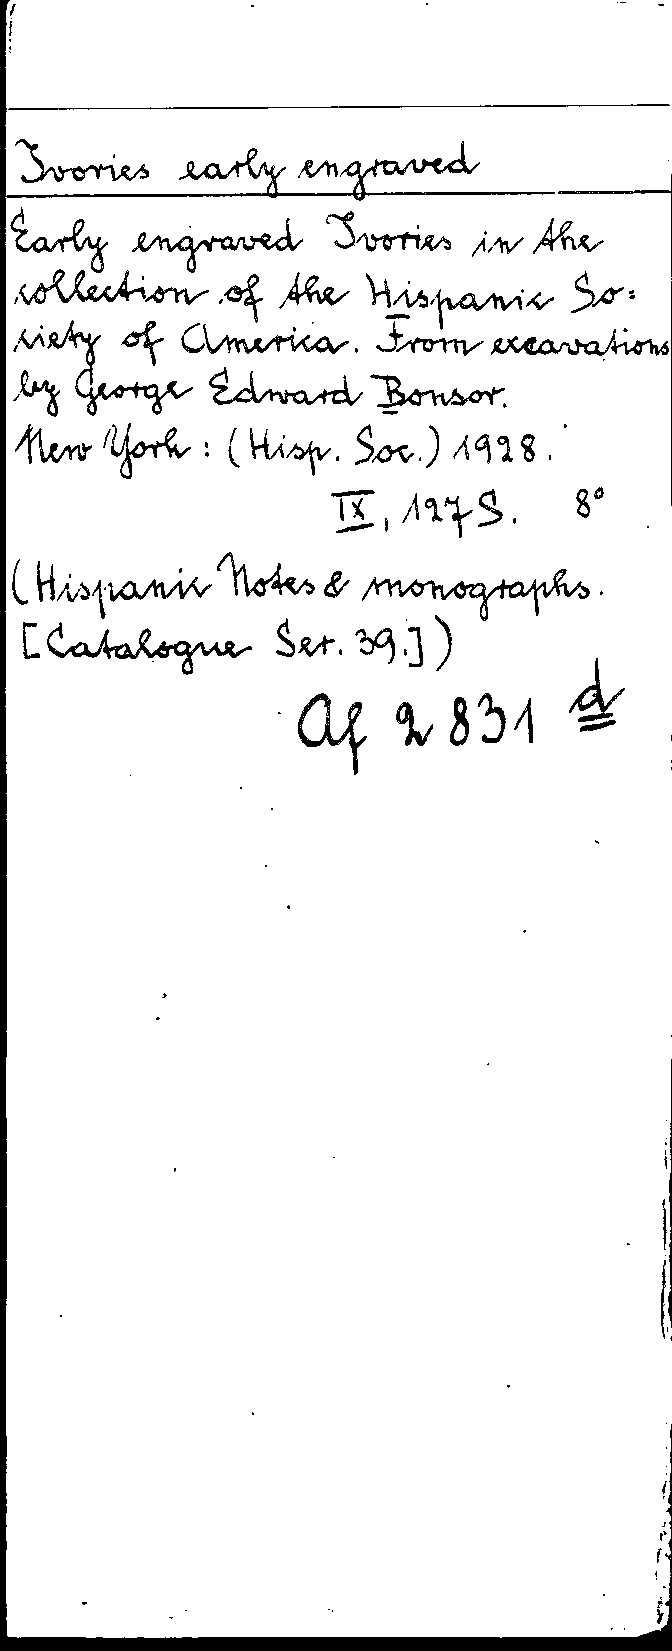 Ivories early engraved
Early engraved Ivories in the
collection of the Hispanic So=
ciety of America. From excavations
by George Edward Bonsor.
New York: (Hisp. Soc.) 1928.
IX, 127 S. 8°
(Hispanic Notes & monographs.
[Catalogue Ser. 39.])
Af 2831 d